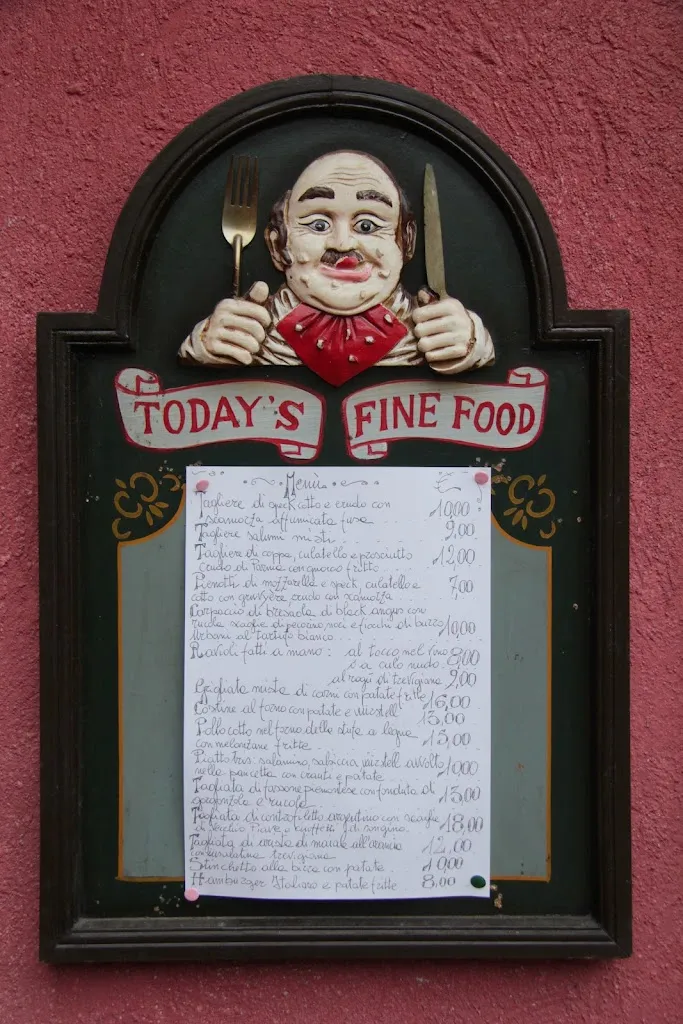 TODAY'S FINE FOOD
Menù €
Tagliere di speck cotto e crudo con 10,00
scamorza affumicata fusa
Tagliere salumi misti 9,00
Tagliere di coppa, culatello e prosciutto 12,00
crudo di Parma con gnocco fritto
di mozzarella e speck, culatello e 7,00
cotto con gruvyere crudo con scamorza
Carpaccio di bresaola di black angus con
rucola scaglie di pecorino, noci e fiocchi di burro 10,00
al tartufo bianco
Ravioli fatti a mano: al tocco, nel
o a culo nudo. 8,00
al ragù di trevigiana 9,00
Grigliata mista di carni con patate fritte 16,00
Costine al forno con patate e wurstell 13,00
Pollo cotto nel forno della stufa a legna 15,00
con melanzane fritte
Piatto : salamino, salsiccia, wurstell avvolto 10,00
nella pancetta con crauti e patate
Tagliata di fassone piemontese con fonduta di 15,00
gorgonzola e rucola
Tagliata di controfiletto argentino con scaglie 18,00
di Vecchio Piave e di songino.
Tagliata di arista di maiale all'arancia 12,00
con trevigiana
Stinchetto alla birra con patate 10,00
Hamburger Italiano e patate fritte 8,00